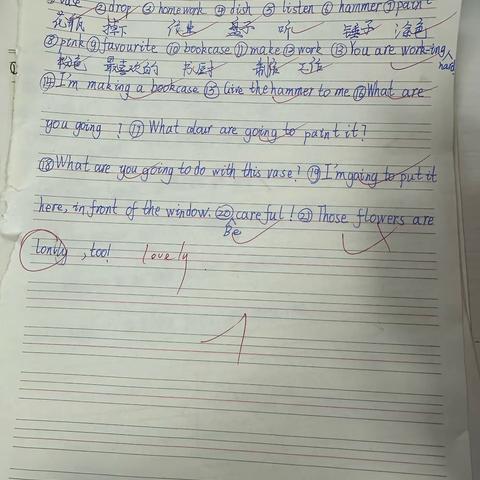 ① vase ② drop ③ homework ④ dish ⑤ listen ⑥ hammer ⑦ paint
花瓶 掉下 作业 盘子 听 锤子 涂色
⑧ pink ⑨ favourite ⑩ bookcase ⑪ make ⑫ work ⑬ You are work-ing
粉色 最喜欢的 书厨 制作 工作 hard
⑭ I'm making a bookcase ⑮ Give the hammer to me ⑯ What are
you going ? ⑰ What alour are going to paint it?
⑱ What are you going to do with this vase? ⑲ I'm going to put it
here, in front of the window. ⑳ Be careful! ㉑ Those flowers are
lonely, too! lovely